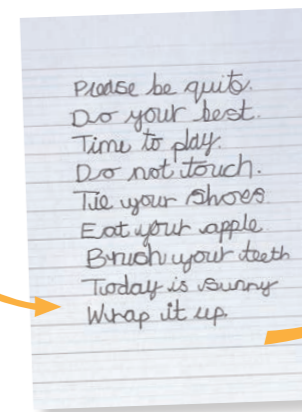 Please be quite.
Do your best.
Time to play.
Do not touch.
Tie your shoes
Eat your apple
Brush your teeth
Today is sunny
Wrap it up.